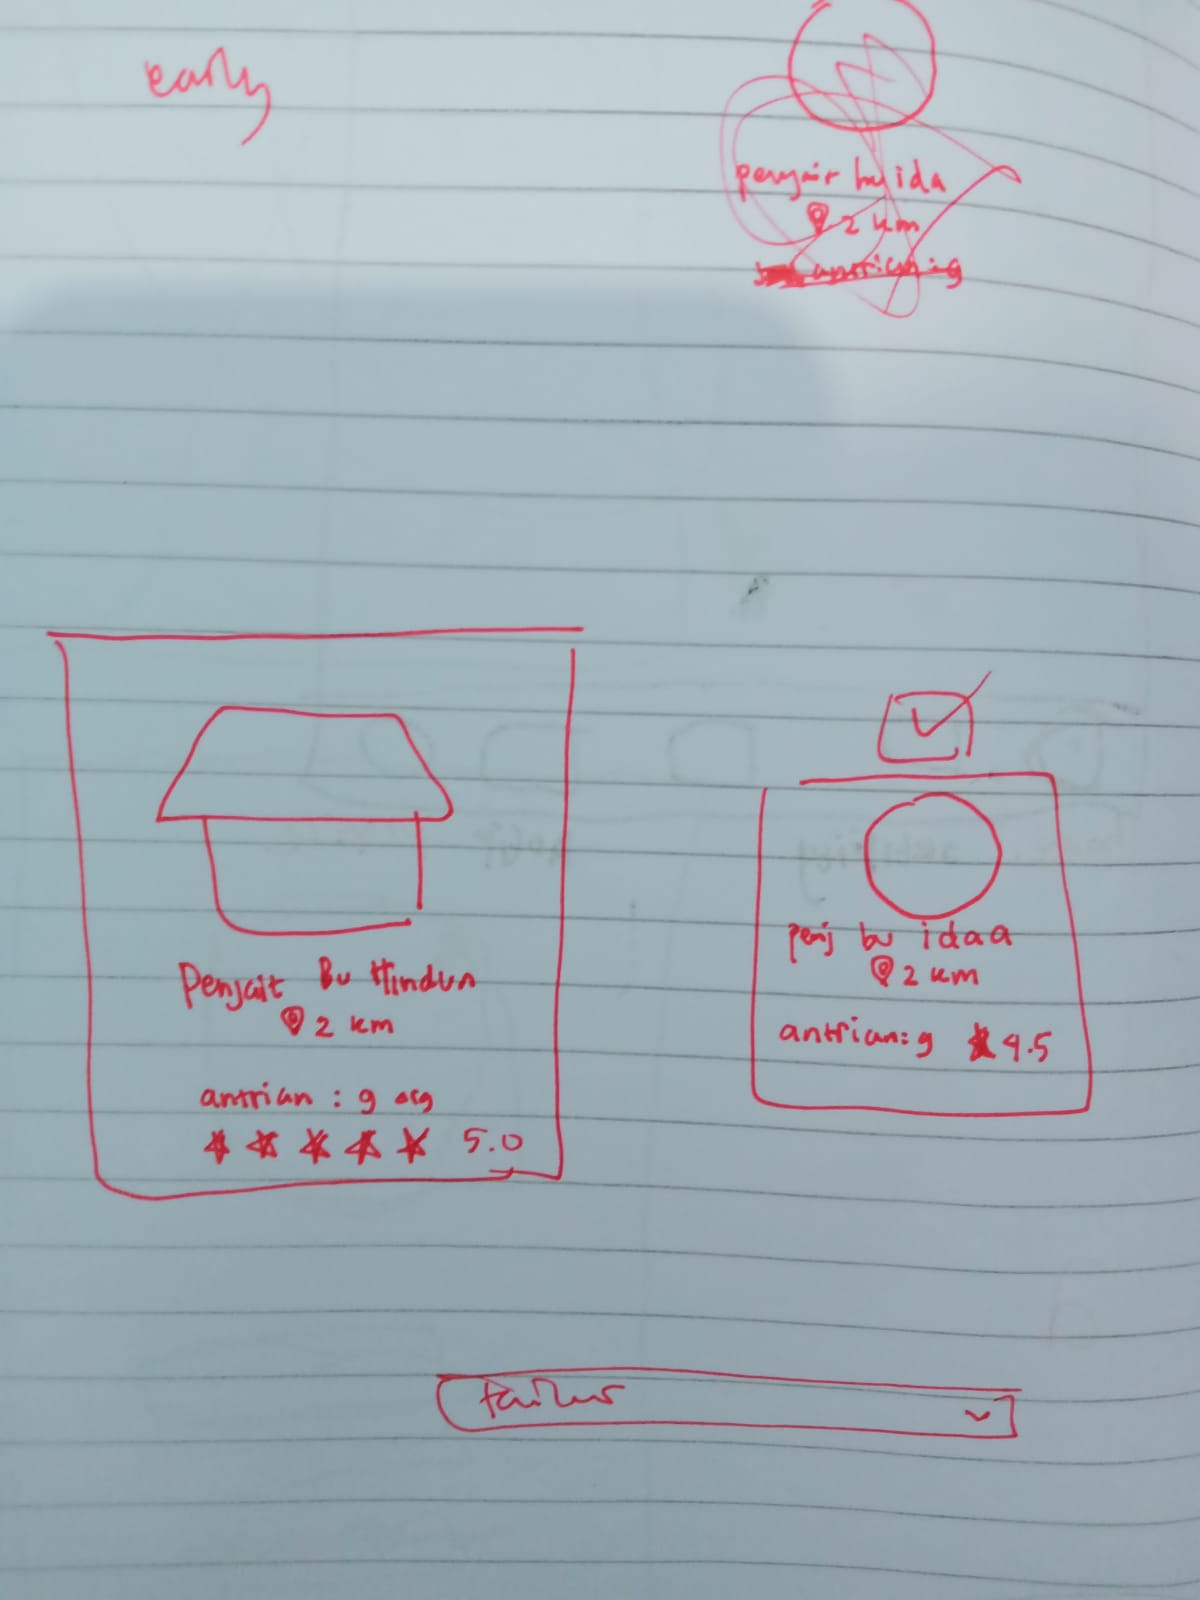 early
penjair bu ida
2 km
antrian: 9
Penjait Bu Hindun
2 km
antrian : 9 org
5.0
penj bu idaa
2 km
antrian: 9 4.5
tailor